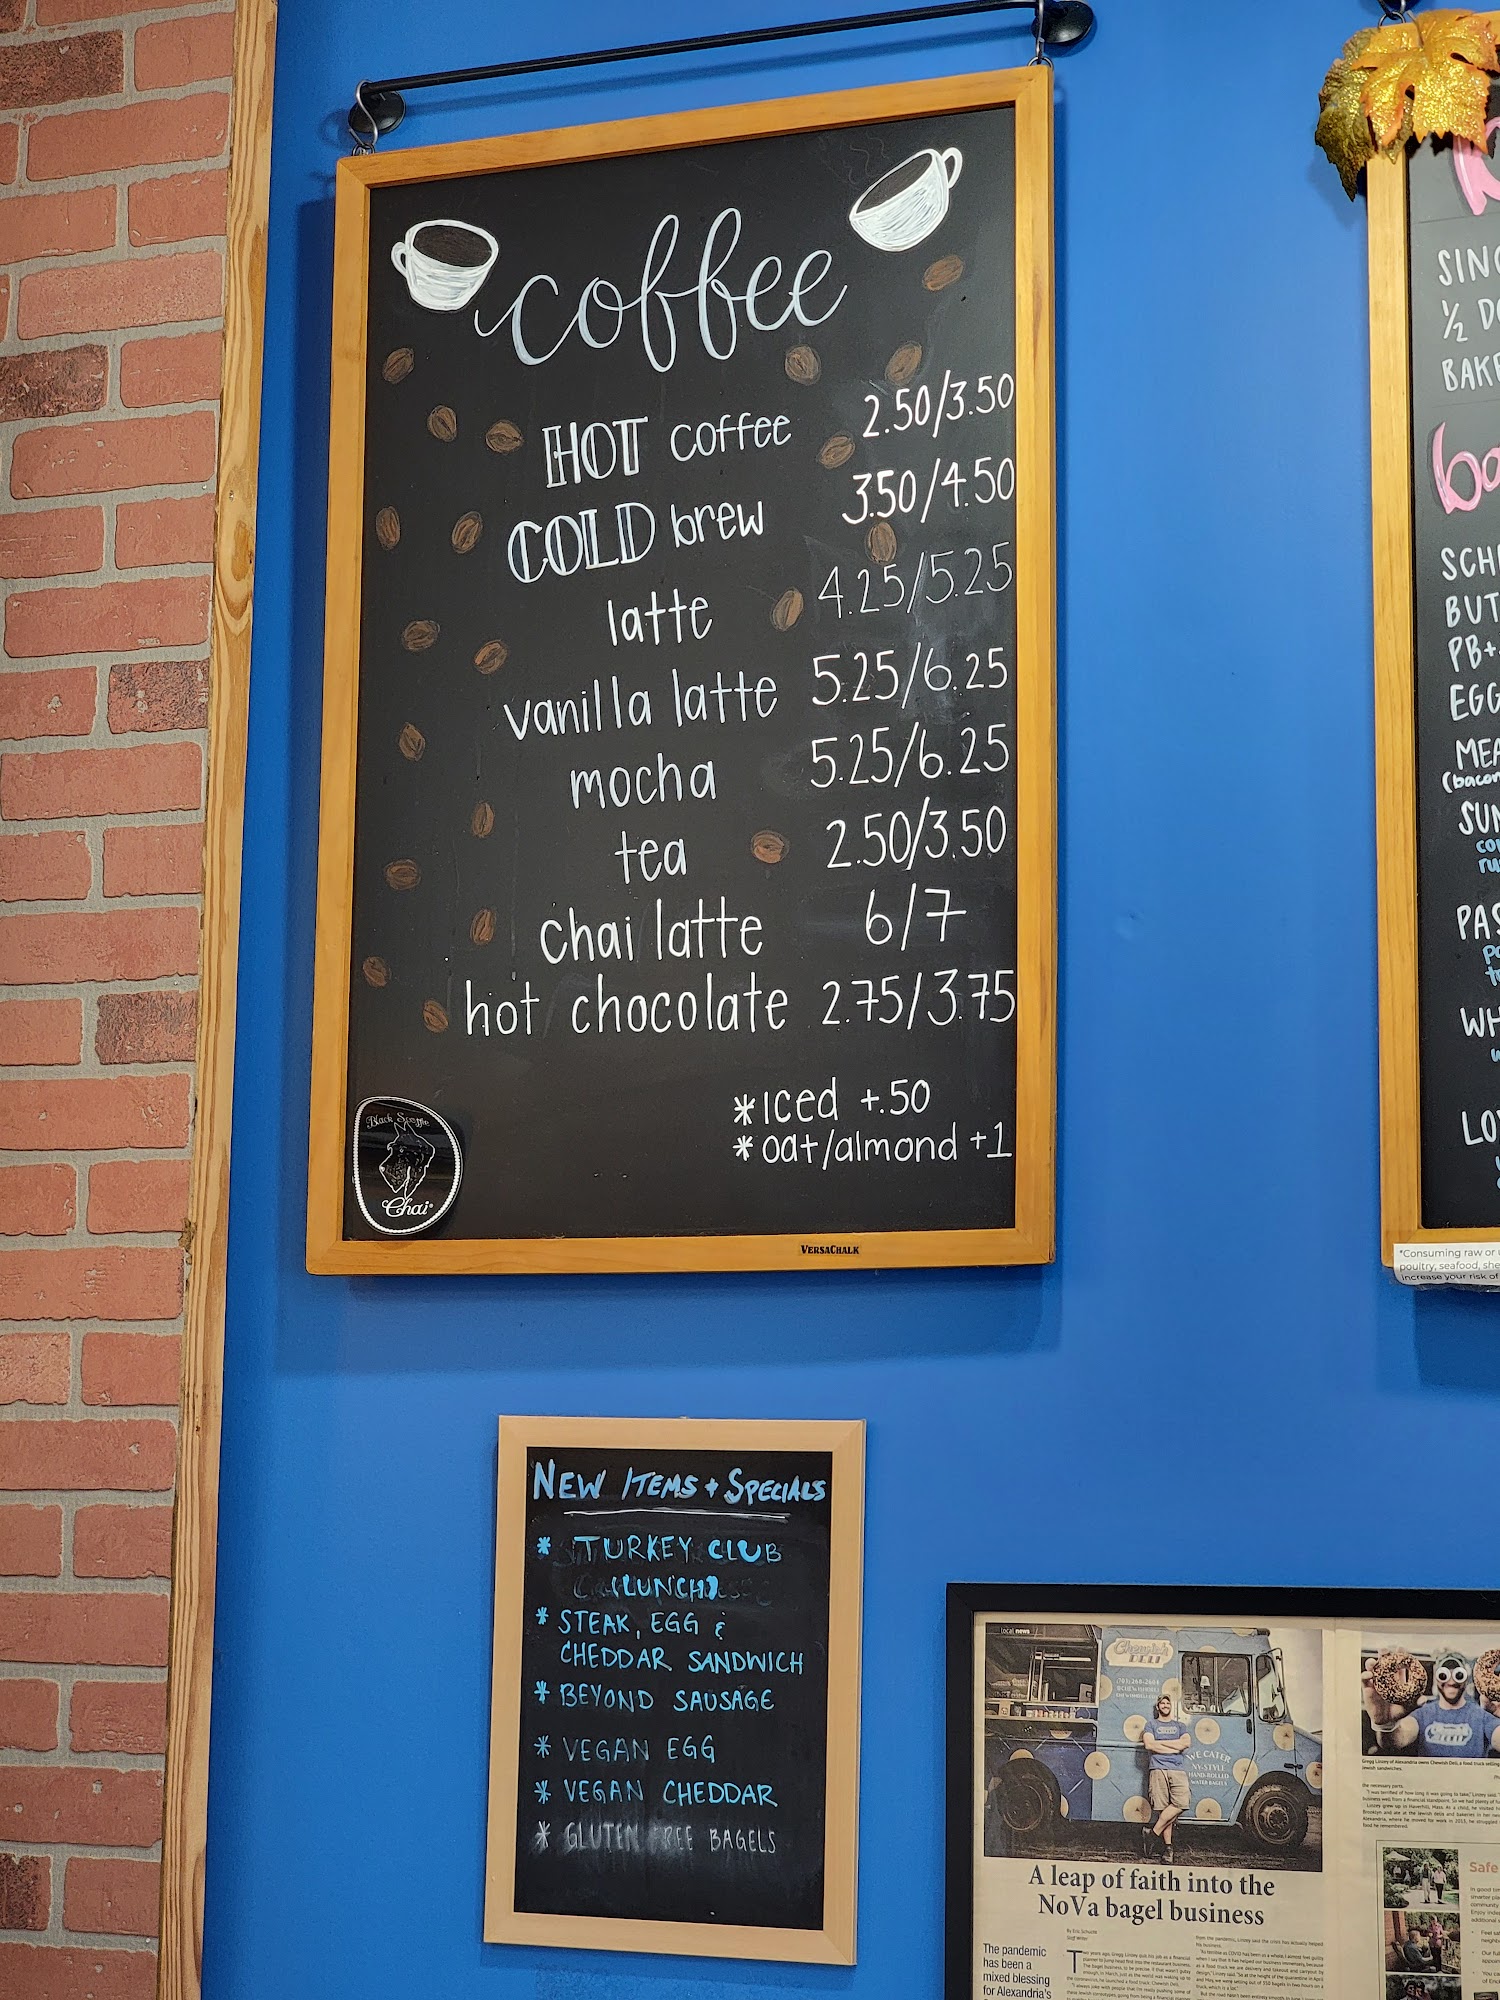 coffee
HOT coffee 2.50/3.50
COLD brew 3.50/4.50
latte 4.25/5.25
vanilla latte 5.25/6.25
mocha 5.25/6.25
tea 2.50/3.50
chai latte 6/7
hot chocolate 2.75/3.75
*iced +.50
*oat/almond +1
Chai
VERSACHALK
NEW ITEMS + SPECIALS
* TURKEY CLUB
(LUNCH)
* STEAK, EGG &
CHEDDAR SANDWICH
* BEYOND SAUSAGE
* VEGAN EGG
* VEGAN CHEDDAR
* GLUTEN FREE BAGELS
SING
1/2 DO
BAKE
ba
SCH
BUT
PB+
EGG
MEA
(bacon
SUN
PAS
WH
LO
*Consuming raw or
poultry, seafood, she
increase your risk of
local news
Chewish
DELI
WE CATER
NY-STYLE
HAND-ROLLED
WATER BAGELS
A leap of faith into the
NoVa bagel business
The pandemic
has been a
mixed blessing
for Alexandria's
Safe